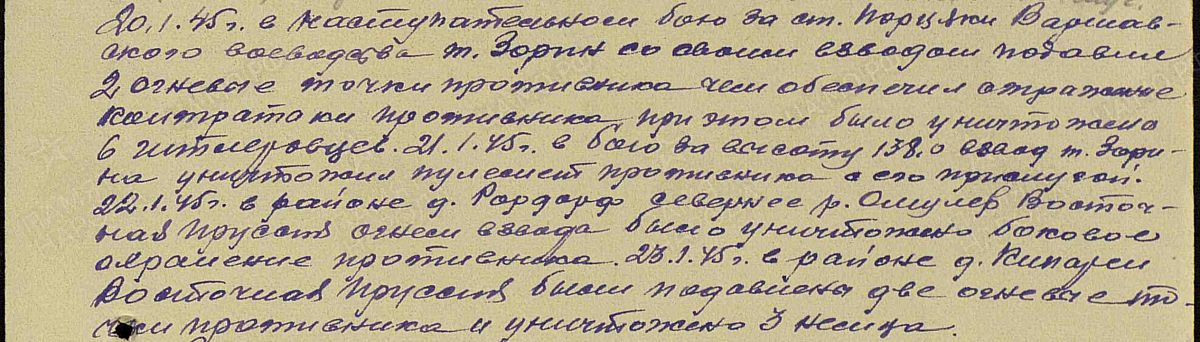 20.1.45г. в наступательном бою за ст. Парцяки Варшав-
ского воеводства т. Зорин со своим взводом подавил
2 огневые точки противника чем обеспечил отражение
контратаки противника, при этом было уничтожено
6 гитлеровцев. 21.1.45г. в бою за высоту 138,0 взвод т. Зори-
на уничтожил пулемет противника с его прислугой.
22.1.45г. в районе д. Рордорф севернее р. Омулев Восточ-
ная Пруссия огнем взвода было уничтожено боковое
охранение противника. 23.1.45г. в районе д. Кипарен
Восточная Пруссия были подавлены две огневые то-
чки противника и уничтожено 3 немца.